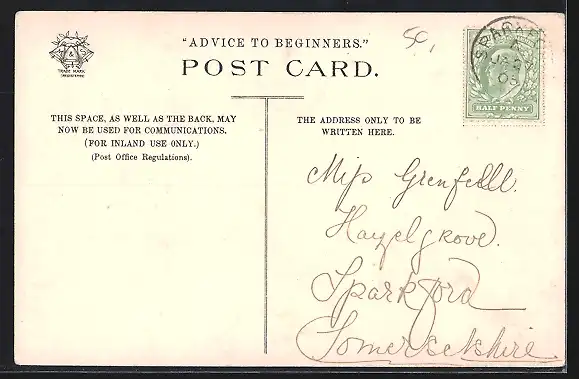 "ADVICE TO BEGINNERS."
POST CARD.
TRADE MARK
REGISTERED
THIS SPACE, AS WELL AS THE BACK, MAY
NOW BE USED FOR COMMUNICATIONS.
(FOR INLAND USE ONLY.)
(Post Office Regulations).
THE ADDRESS ONLY TO BE
WRITTEN HERE.
HALF PENNY
Miss Grenfell.
Hazelgrove.
Sparkford
Somersetshire